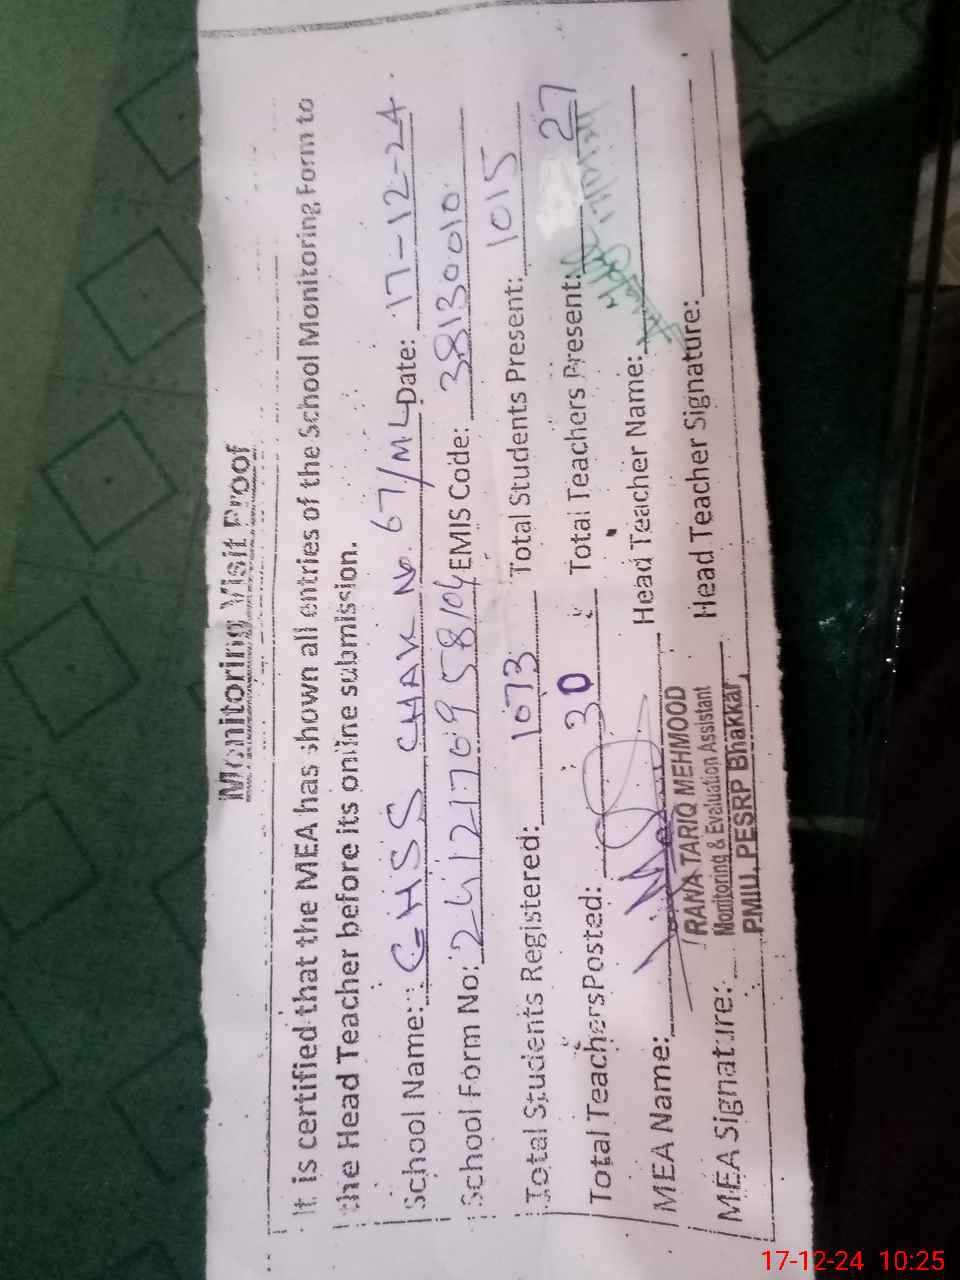 Monitoring Visit Proof
It is certified that the MEA has shown all entries of the School Monitoring Form to
the Head Teacher before its online submission.
School Name: GHSS CHAK No. 67/ML Date: 17-12-24
School Form No: EMIS Code: 38130010
Total Students Registered: 1073 Total Students Present: 1015
Total Teachers Posted: 30 Total Teachers Present: 27
MEA Name: Head Teacher Name:
RANA TARIQ MEHMOOD
Monitoring & Evaluation Assistant
MEA Signature: Head Teacher Signature:
PMIU, PESRP Bhakkar
17-12-24 10:25